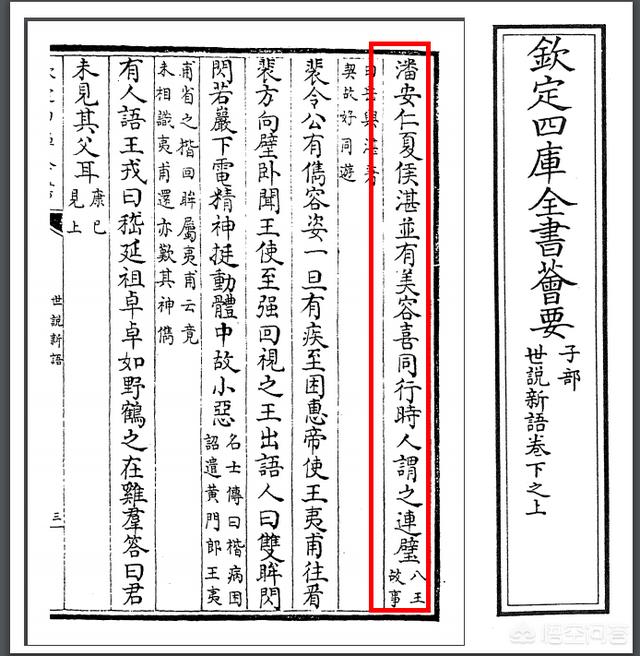 欽定四庫全書薈要
子部
世說新語卷下之上
潘安仁夏侯湛並有美容喜同行時人謂之連璧
八王
故事
曰岳與湛著
契故好同遊
裴令公有儁容姿一旦有疾至困惠帝使王夷甫往看
裴方向壁卧聞王使至强回視之王出語人曰雙眸閃
閃若巖下電精神挺動體中故小惡
名士傳曰楷病困
詔遣黄門郎王夷
甫省之楷回眸屬夷甫云竟
未相識夷甫還亦歎其神儁
有人語王戎曰嵇延祖卓卓如野鶴之在雞羣答曰君
未見其父耳
康已
見上
世說新語
三
悟空问答